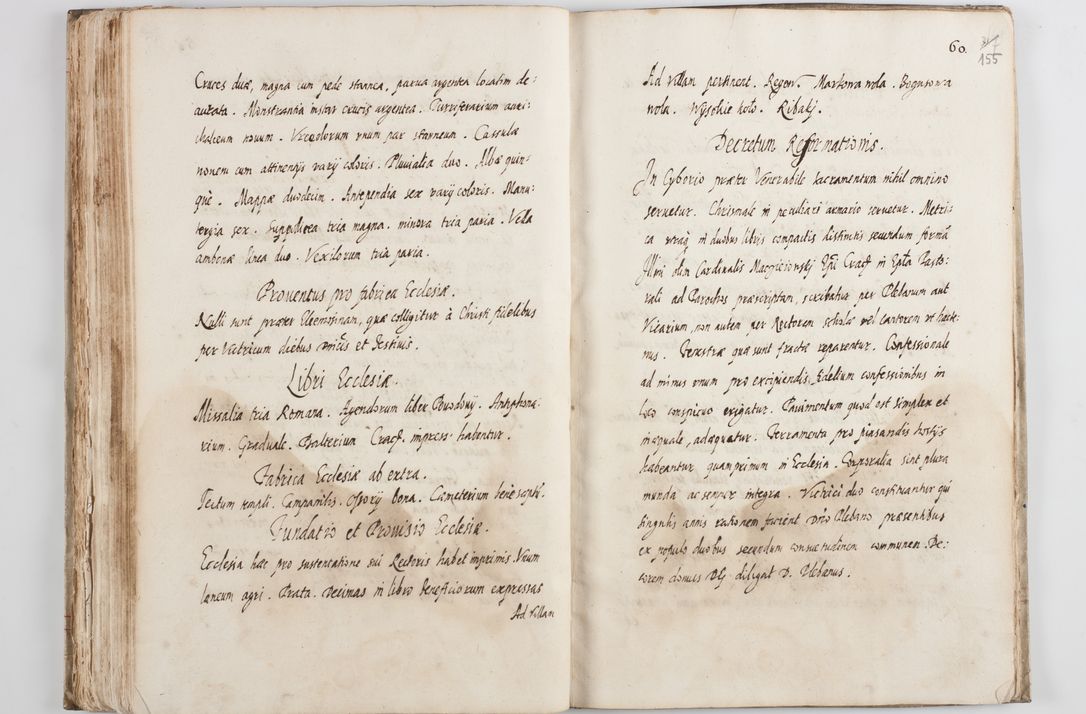 Cruces duæ, magna cum pede stannea, parua argentea locatim de:
aurata. Monstrantia instar crucis argentea. Turriferarium auri:
chalceum nouum. Vrceolorum vnum par stanneum. Casulæ
nouem cum attinentijs varij coloris. Pluuialia duo. Albæ quin:
què. Mappæ duodecim. Antependia sex varij coloris. Manu:
tergia sex. Suppellicea tria magna. minora tria paria. Vela
ambonæ linea duo. Vexilorum tria paria.
Prouentus pro fabrica Ecclesiæ.
Nulli sunt præter Eleemosinam, quæ colligitur à Christi fidelibus
per Vitricum diebus dnicis et festiuis.
Libri Ecclesiæ.
Missalia tria Romana. Agendorum liber Powodouij. Antiphona:
rium. Graduale. Psalterium Crac. impress: habentur.
Fabrica Ecclesiæ ab extra.
Tectum templi. Campanilis. Ossorij bona. Cæmeterium bene septũ.
Fundatio et Prouisio Ecclesiæ.
Ecclesia hæc pro sustentatione sui Rectoris habet imprimis. Vnum
laneum agri. Prata. Decimas in libro beneficiorum expressas
Ad Villam
60.
155
Ad Villam pertinent. Regow. Markowa wola. Bogusowa
wola. Wysokie koło. Ribakj.
Decretum Reformationis.
In Cyborio præter Venerabile sacramentum nihil omnino
seruetur. Chrismale in peculiari armario seruetur. Metri:
ca vtraq in duobus libris compactis distinctis secundum formã
Illmi olim Cardinalis Macieiowskj Epi Crac in Epla Pasto:
rali ad Parochos præscriptam, scribatur per Plebanum aut
Vicarium, non autem per Rectorem scholæ vel cantorem vt hacte:
nus. Fenestræ quæ sunt fractæ reparentur. Confessionale
ad minus vnum pro excipiendis fidelium confessionibus in
loco conspicuo erigatur. Pauimentum quod est simplex et
inæquale, adæquatur. Ferramenta pro piasandis hostijs
habeantur quamprimum in Ecclesia. Corporalia sint plura
munda ac semper integra. Vitrici duo constituantur qui
singulis annis rationem facient Dno Plebano præsentibus
ex populo duobus secundum consuetudinem communem. De:
corem domus Dei diligat D. Plebanus.